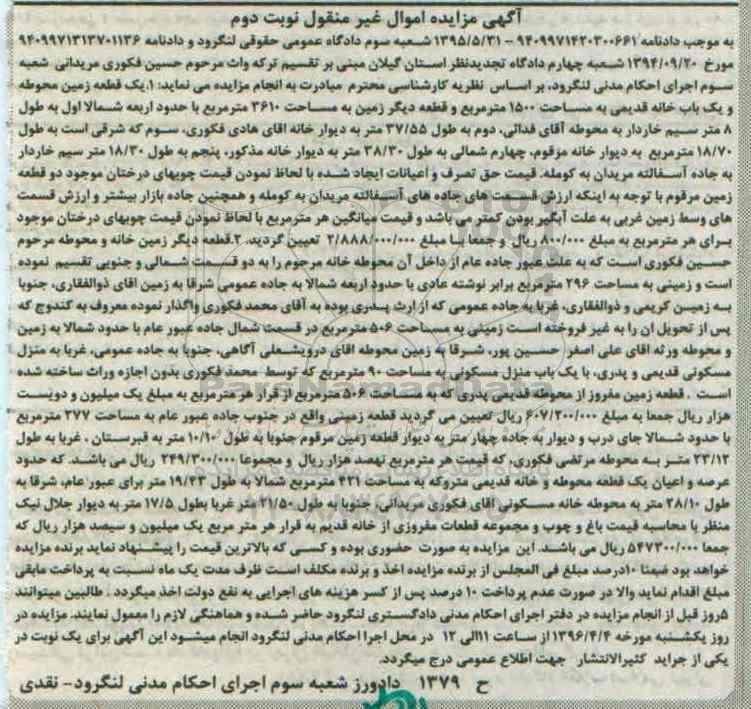 آگهی مزایده اموال غیر منقول نوبت دوم
به موجب دادنامه ۹۴۰۹۹۷۱۴۲۰۳۰۰۶۶۱ – ۱۳۹۵/۵/۳۱ شعبه سوم دادگاه عمومی حقوقی لنگرود و دادنامه ۹۴۰۹۹۷۱۳۱۳۷۰۱۱۳۶
مورخ ۱۳۹۴/۰۹/۲۰ شعبه چهارم دادگاه تجدیدنظر استان گیلان مبنی بر تقسیم ترکه وات مرحوم حسین فکوری مریدانی شعبه
سوم اجرای احکام مدنی لنگرود، بر اساس نظریه کارشناسی محترم مبادرت به انجام مزایده می نماید: ۱.یک قطعه زمین محوطه
و یک باب خانه قدیمی به مساحت ۱۵۰۰ مترمربع و قطعه دیگر زمین به مساحت ۳۶۱۰ مترمربع با حدود اربعه شمالا اول به طول
۸ متر سیم خاردار به محوطه آقای فدائی، دوم به طول ۳۷/۵۵ متر به دیوار خانه اقای هادی فکوری، سوم که شرقی است به طول
۱۸/۷۰ مترمربع به دیوار خانه مزقوم، چهارم شمالی به طول ۳۸/۳۰ متر به دیوار خانه مذکور، پنجم به طول ۱۸/۳۰ متر سیم خاردار
به جاده آسفالته مریدان به کومله. قیمت حق تصرف و اعیانات ایجاد شده با لحاظ نمودن قیمت چوبهای درختان موجود دو قطعه
زمین مرقوم با توجه به اینکه ارزش قسمت های جاده های آسفالته مریدان به کومله و همچنین جاده بازار بیشتر و ارزش قسمت
های وسط زمین غربی به علت آبگیر بودن کمتر می باشد و قیمت میانگین هر مترمربع با لحاظ نمودن قیمت چوبهای درختان موجود
برای هر مترمربع به مبلغ ۸۰۰/۰۰۰ ریال و جمعا با مبلغ ۲/۸۸۸/۰۰۰/۰۰۰ تعیین گردید. ۲.قطعه دیگر زمین خانه و محوطه مرحوم
حسین فکوری است که به علت عبور جاده عام از داخل آن محوطه خانه مرحوم را به دو قسمت شمالی و جنوبی تقسیم نموده
است و زمینی به مساحت ۲۹۶ مترمربع برابر نوشته عادی با حدود اربعه شمالا به جاده عمومی شرقا به زمین اقای ذوالفقاری، جنوبا
به زمین کریمی و ذوالفقاری، غربا به جاده عمومی که از ارث پدری بوده به آقای محمد فکوری واگذار نموده معروف به کندوج که
پس از تحویل ان را به غیر فروخته است زمینی به مساحت ۵۰۶ مترمربع در قسمت شمال جاده عبور عام با حدود شمالا به زمین
و محوطه ورثه اقای علی اصغر حسین پور، شرقا به زمین محوطه اقای درویشعلی آگاهی، جنوبا به جاده عمومی، غربا به منزل
مسکونی قدیمی و پدری، با یک باب منزل مسکونی به مساحت ۹۰ مترمربع که توسط محمد فکوری بدون اجازه وراث ساخته شده
است . قطعه زمین مفروز از محوطه قدیمی پدری که به مساحت ۵۰۶ مترمربع از قرار هر مترمربع به مبلغ یک میلیون و دویست
هزار ریال جمعا به مبلغ ۶۰۷/۲۰۰/۰۰۰ ریال تعیین می گردید قطعه زمینی واقع در جنوب جاده عبور عام به مساحت ۲۷۷ مترمربع
با حدود شمالا جای درب و دیوار به جاده چهار متر به دیوار قطعه زمین مرقوم جنوبا به طول ۱۰/۱۰ متر به قبرستان ، غربا به طول
۲۳/۱۲ متر به محوطه مرتضی فکوری، که قیمت هر مترمربع نهصد هزار ریال و مجموعا ۲۴۹/۳۰۰/۰۰۰ ریال می باشد. که حدود
عرصه و اعیان یک قطعه محوطه و خانه قدیمی متروکه به مساحت ۴۲۱ مترمربع شمالا به طول ۱۹/۴۳ متر برای عبور عام، شرقا به
طول ۲۸/۱۰ متر به محوطه خانه مسکونی آقای فکوری مریدانی، جنوبا به طول ۲۱/۵۰ متر غربا بطول ۱۷/۵ متر به دیوار جلال نیک
منظر با محاسبه قیمت باغ و چوب و مجموعه قطعات مفروزی از خانه قدیم به قرار هر متر مربع یک میلیون و سیصد هزار ریال که
جمعا ۵۴۷۳۰۰/۰۰۰ ریال می باشد. این مزایده به صورت حضوری بوده و کسی که بالاترین قیمت را پیشنهاد نماید برنده مزایده
خواهد بود ضمنا ۱۰درصد مبلغ فی المجلس از برنده مزایده اخذ و برنده مکلف است ظرف مدت یک ماه نسبت به پرداخت مابقی
مبلغ اقدام نماید والا در صورت عدم پرداخت ۱۰ درصد پس از کسر هزینه های اجرایی به نفع دولت اخذ میگردد . طالبین میتوانند
۵روز قبل از انجام مزایده در دفتر اجرای احکام مدنی دادگستری لنگرود حاضر شده و هماهنگی لازم را معمول نمایند. مزایده در
روز یکشنبه مورخه ۱۳۹۶/۴/۴ از ساعت ۱۱الی ۱۲ در محل اجرا احکام مدنی لنگرود انجام میشود این آگهی برای یک نوبت در
یکی از جراید کثیرالانتشار جهت اطلاع عمومی درج میگردد.
ح ۱۳۷۹ دادورز شعبه سوم اجرای احکام مدنی لنگرود– نقدی
ParsNamadData